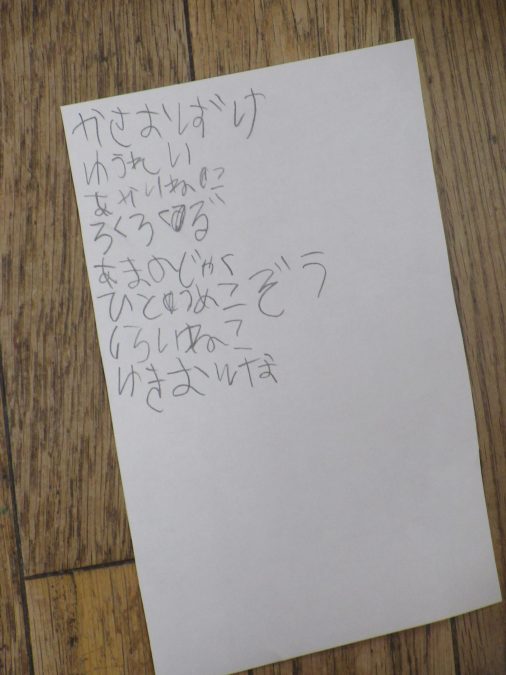 かさおばけ
ゆうれい
あかいねこ
ろくろくび
あまのじゃく
ひとつめこぞう
しろいねこ
ゆきおんな